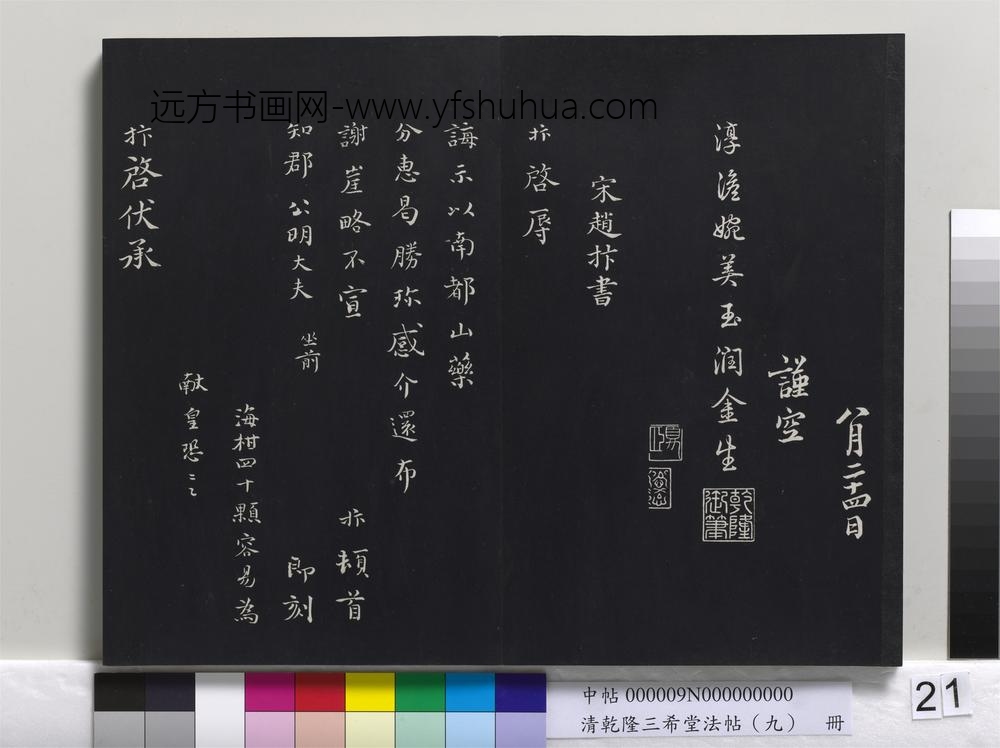 远方书画网-www.yfshuhua.com
八月二十四日
謹空
淳澹婉美玉润金生
乾隆御筆
宋趙抃書
抃啓辱
誨示以南都山藥
分惠曷勝珎感介還布
謝崖略不宣 抃頓首
知郡公明大夫 坐前 即刻
海柑四十顆容易為
献皇恐〻
抃啓伏承
中帖 000009N000000000
清乾隆三希堂法帖(九) 冊
21